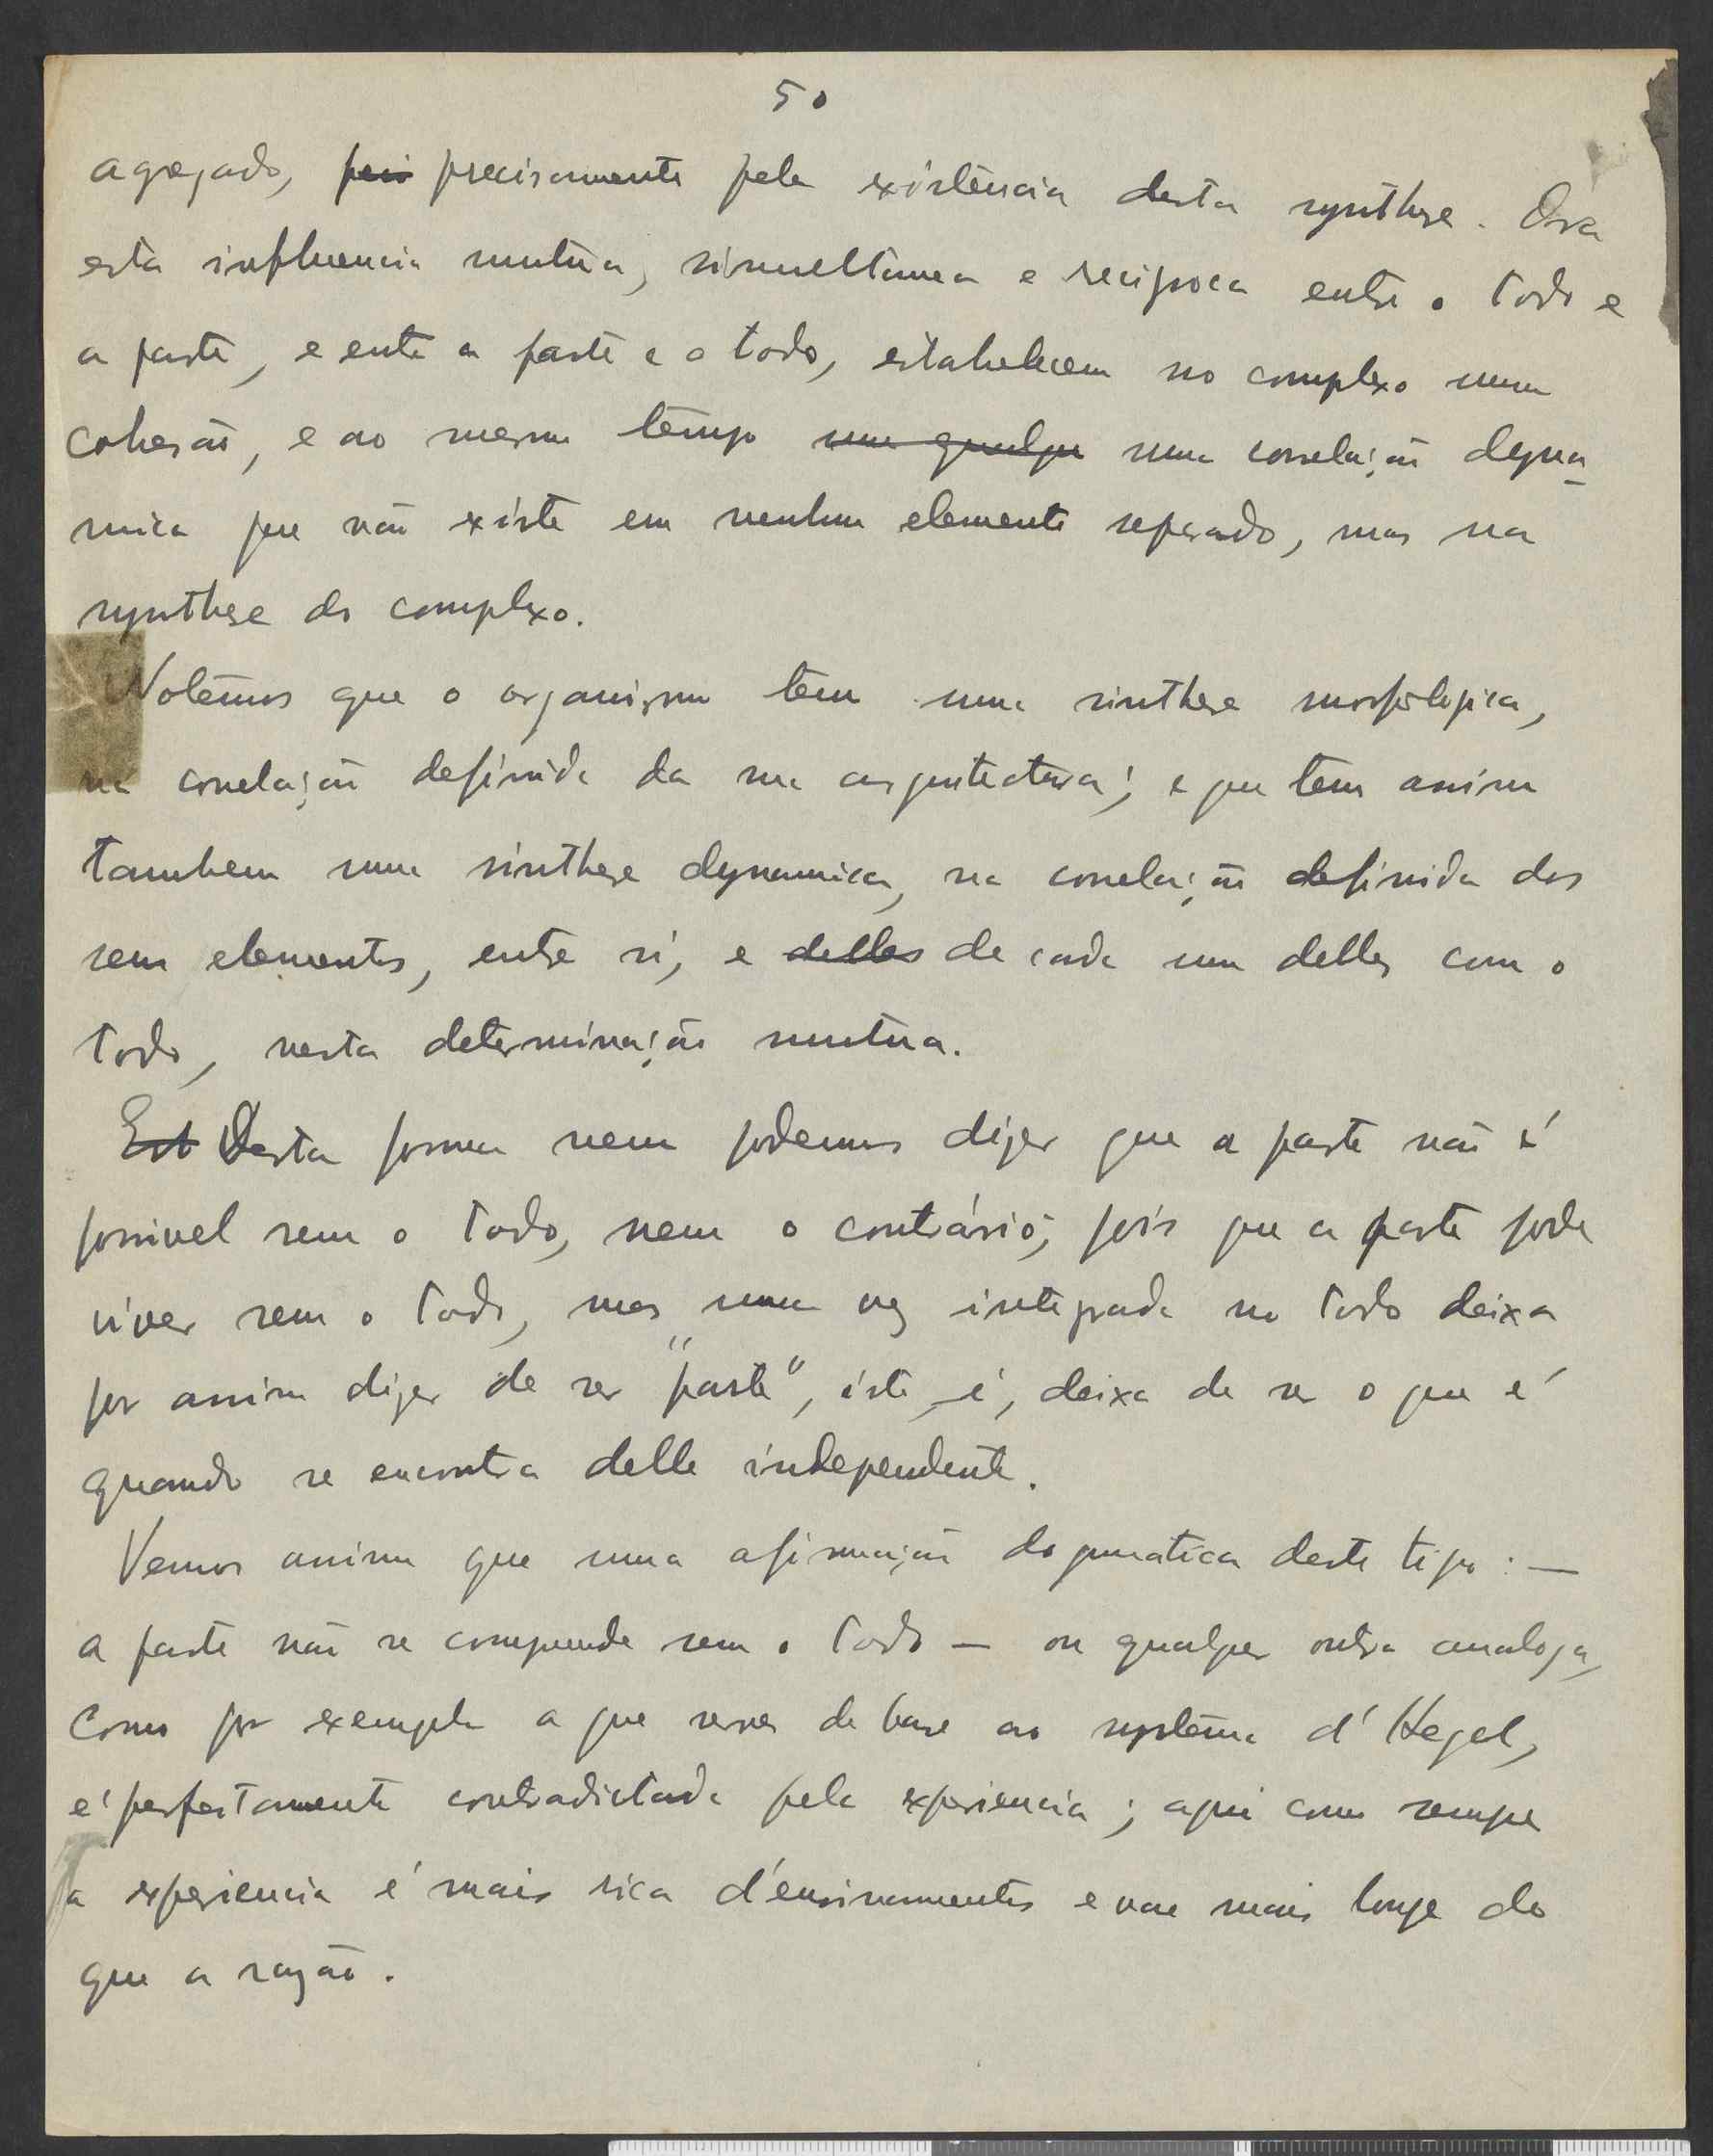 50
agregado, pois precisamente pela existência desta synthese. Ora
esta influencia mutúa, simultanea e reciproca entre o todo e
a parte, e entre a parte e o todo, estabelecem no complexo uma
cohesão, e ao mesmo têmpo uma qualquer uma correlação dyna-
mica que não existe em nenhum elemento separado, mas na
synthese do complexo.
Notêmos que o organismo têm uma sinthese morfológica,
na correlação definida da sua arquitectura; e que têm assim
tambem uma sinthese dynamica, na correlação definida dos
seus elementos, entre si, e delles de cada um delles com o
todo, nesta determinação mutúa.
Est Desta forma nem podemos dizer que a parte não é
possivel sem o todo, nem o contrário; pois que a parte pode
viver sem o todo, mas uma vez integrada no todo deixa
por assim dizer de ser "parte", isto é, deixa de ser o que é
quando se encontra delle independente.
Vemos assim que uma afirmação dogmatica deste tipo: —
a parte não se comprende sem o todo — ou qualquer outra analoga,
como por exemplo a que serve de base ao systêma d'Hegel,
é perfeitamente contradictada pela experiencia; aqui como sempre
a experiencia é mais rica d'ensinamentos e vae mais longe do
que a razão.